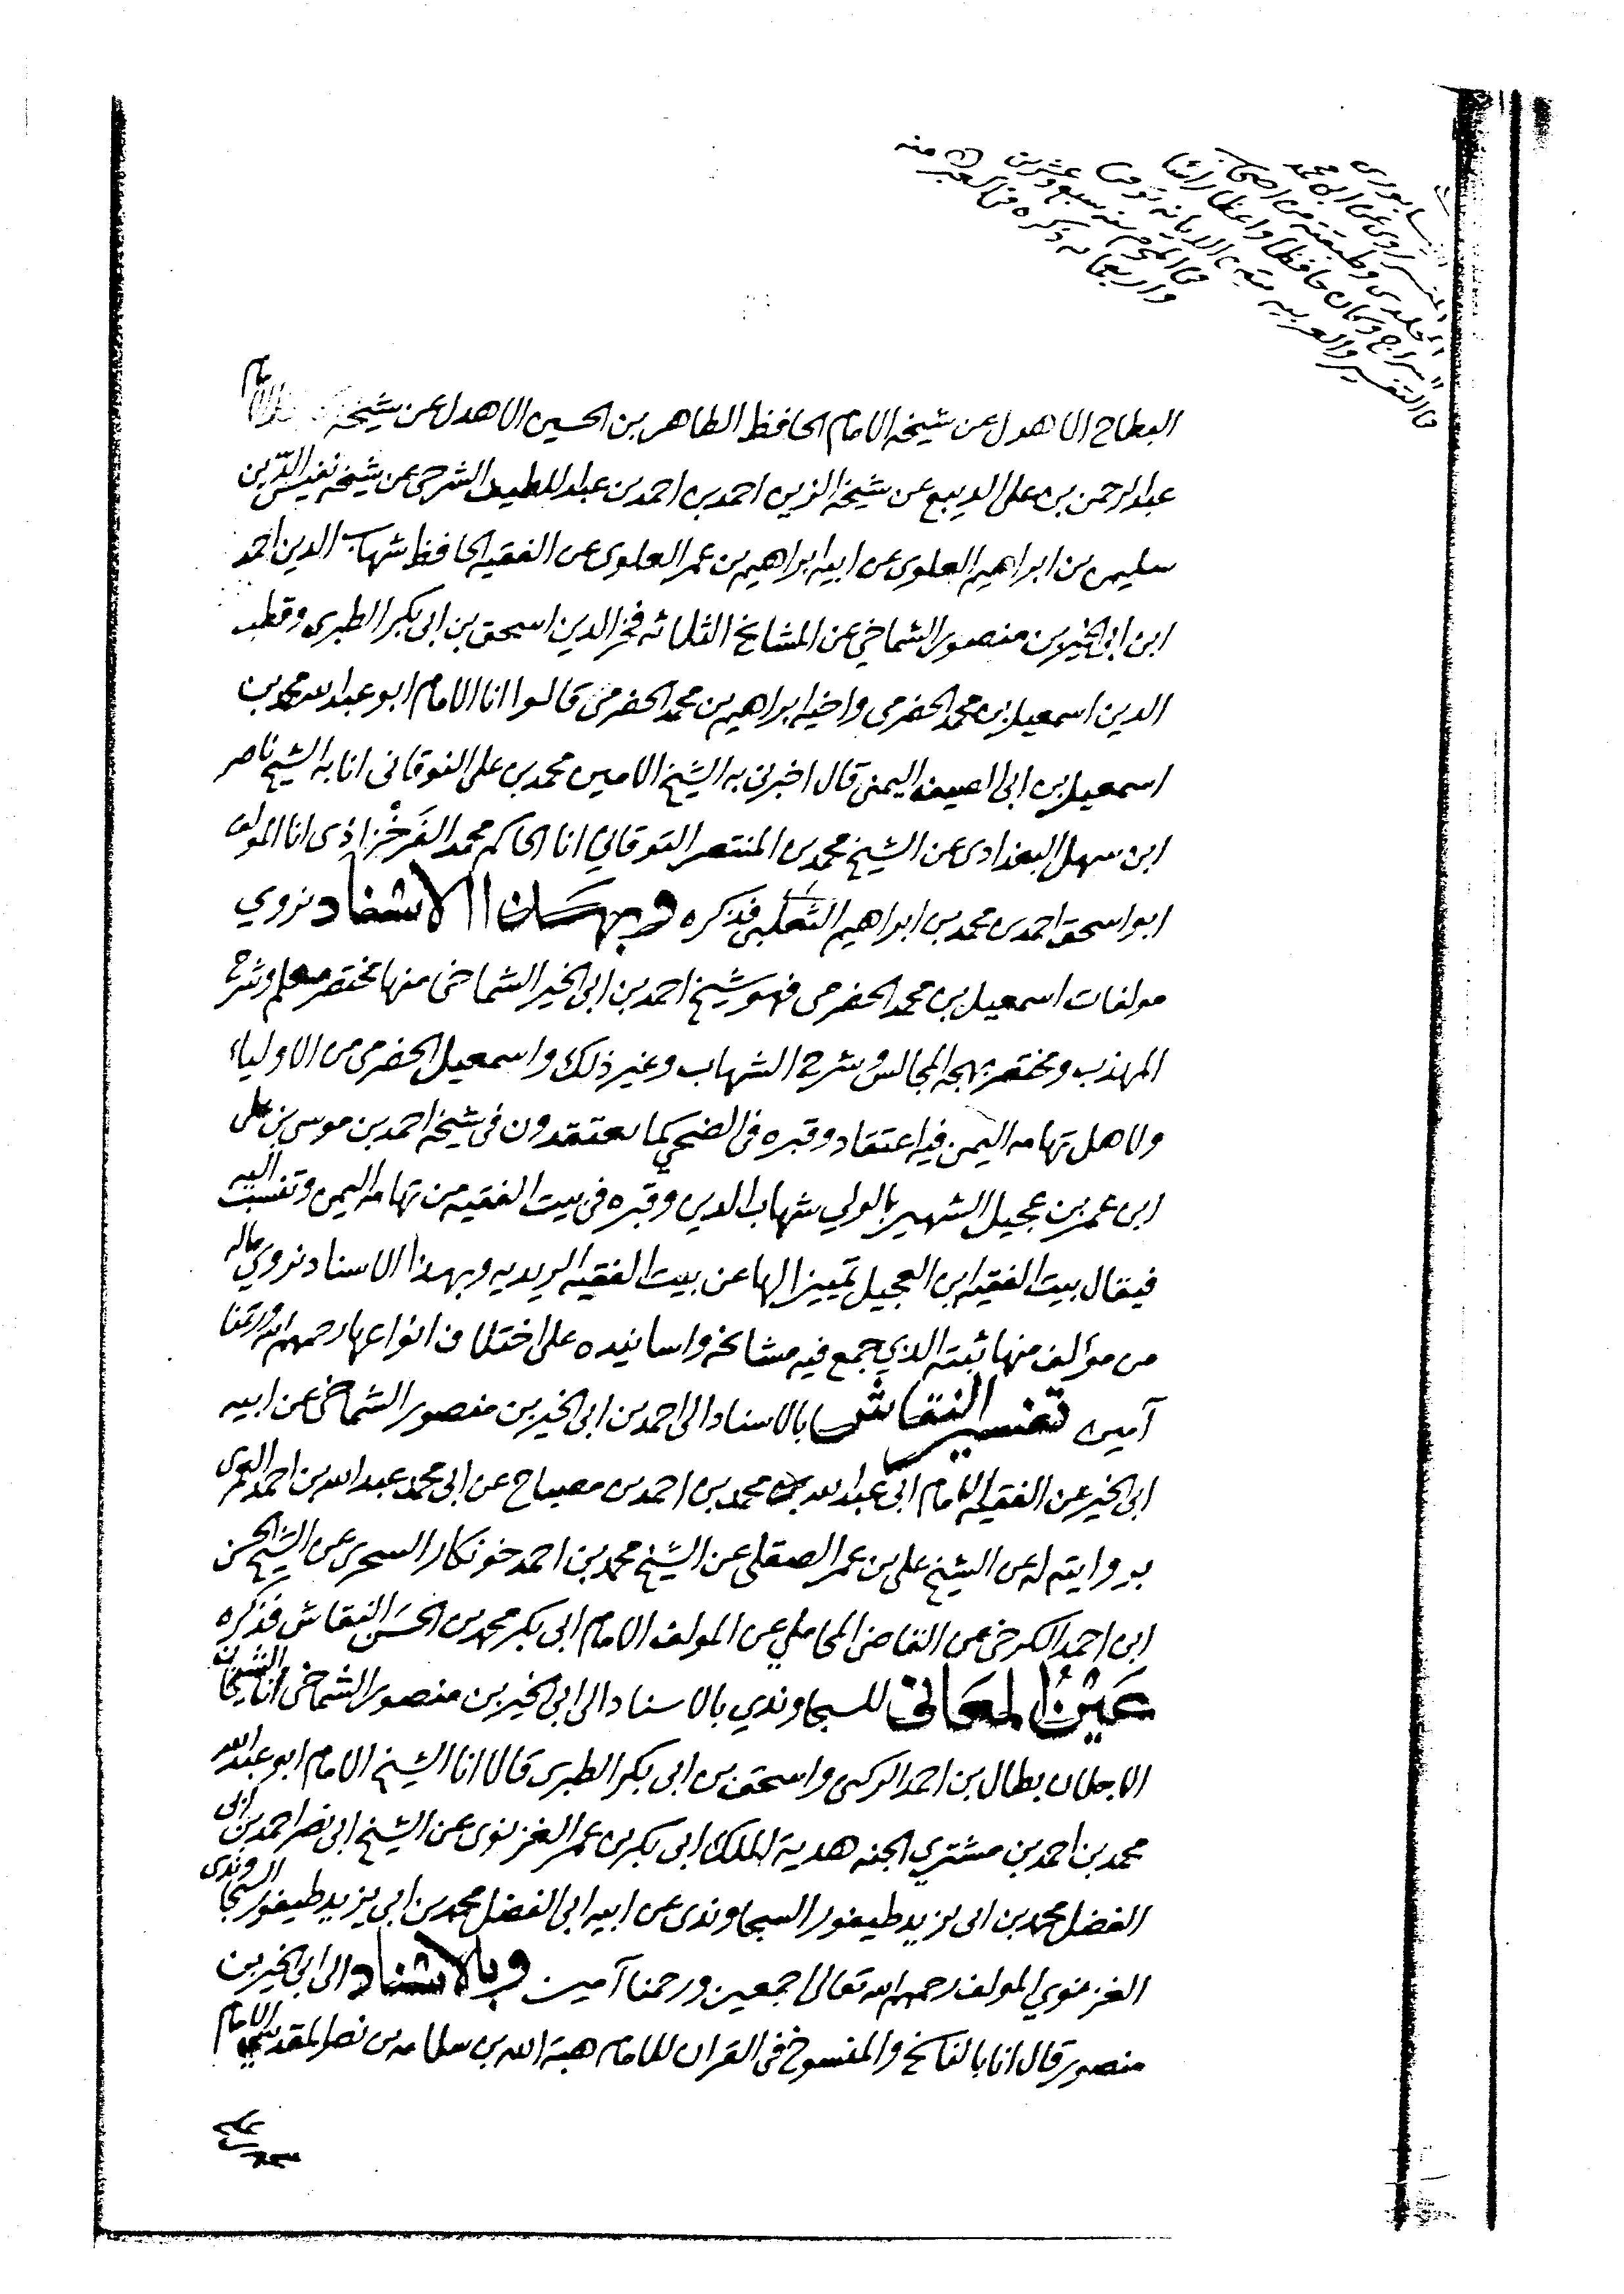 سابوري
المفسر روى عن ابي محمد
المخلدي وطبقته من اصحاب
السراج وكان حافظا واعظا راسا
في التفسير والعربيه متين الديانه توفي
في المحرم سنه سبع وعشرين
واربعمائه ذكره في العبر منه
البطاح الاهدل عن شيخه الامام الحافظ الطاهر بن الحسين الاهدل عن شيخه الامام
عبد الرحمن بن علي الديبع عن شيخه الزين احمد بن احمد بن عبد اللطيف الشرجي عن شيخه نفيس الدين
سليمن بن ابراهيم العلوي عن ابيه ابراهيم بن عمر العلوي عن الفقيه الحافظ شهاب الدين احمد
ابن ابي الخير بن منصور الشماخي عن المشايخ الثلاثه فخر الدين اسحق بن ابي بكر الطبري وقطب
الدين اسمعيل بن محمد الحضرمي واخيه ابراهيم بن محمد الحضرمي قالوا انا الامام ابو عبد الله محمد بن
اسمعيل بن ابي الصيف اليمني قال اخبرني به الشيخ الامين محمد بن علي النوقاني انا به الشيخ ناصر
ابن سهل البغدادي عن الشيخ محمد بن المنتصر النوقاني انا الحاكم محمد الفَرخْزاذي انا المولف
ابو اسحق احمد بن محمد بن ابراهيم الثعلبي فذكره وبهذا الاسناد نروي
مولفات اسمعيل بن محمد الحضرمي فهو شيخ احمد بن ابي الخير الشماخي منها مختصر مسلم وشرح
المهذب ومختصر بهجه المجالس وشرح الشهاب وغير ذلك واسمعيل الحضرمي من الاولياء
ولاهل تهامه اليمن فيه اعتقاد وقبره في الضحي كما يعتقدون في شيخه احمد بن موسى بن علي
ابن عمر بن عجيل الشهير بالولي شهاب الدين وقبره في بيت الفقيه من تهامه اليمن وتنسب اليه
فيقال بيت الفقيه ابن العجيل تمييزا لها عن بيت الفقيه الزيديه وبهذا الاسناد نروي ماله
من مؤالف منها ثبته الذي جمع فيه مشائخه واسانيده على اختلاف انواعها رحمهم الله ورحمنا
آمين تفسير النقاش بالاسناد الى احمد بن ابي الخير بن منصور الشماخي عن ابيه
ابي الخير عن الفقيه الامام ابي عبد الله محمد بن احمد بن مصباح عن ابي محمد عبد الله بن احمد
بروايته له عن الشيخ علي بن عمر الصقلي عن الشيخ محمد بن احمد خونكار السجزي عن الشيخ الحسن
ابن احمد الكرخي عن القاضي المحاملي عن المولف الامام ابي بكر محمد بن الحسن النقاش فذكره
عَيْنُ المعَاني للسجاوندي بالاسناد الى ابي الخير بن منصور الشماخي انا الشيخان
الاجلان بطال بن احمد الركبي واسحق بن ابي بكر الطبري قالا انا الشيخ الامام ابو عبد الله
محمد بن احمد بن مشتري الجنه هدية الملك ابي بكر بن عمر الغزنوي عن الشيخ ابي نصر احمد بن ابي
الفضل محمد بن ابي يزيد طيفور السجاوندي عن ابيه ابي الفضل محمد بن ابي يزيد طيفور السجاوندي
الغزنوي المولف رحمهم الله تعالى اجمعين ورحمنا آمين وبالاسناد الى ابي الخير بن
منصور قال انا بالناسخ والمنسوخ في القران للامام هبة الله بن سلامه بن نصر المقدسي الامام